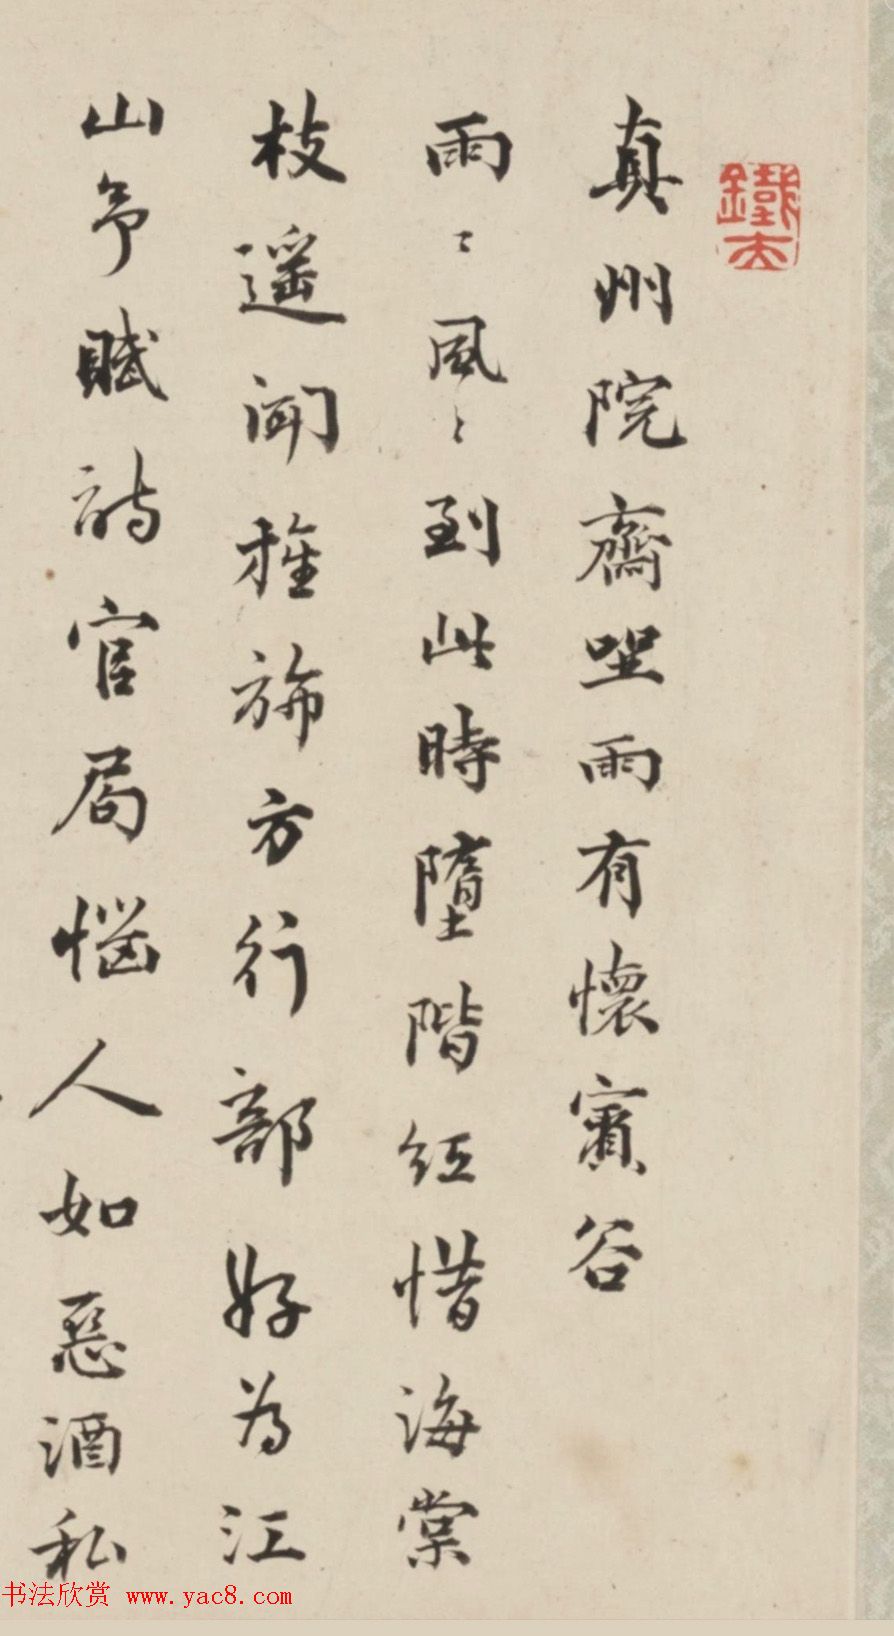 鐵夫
真州院齋坐雨有懷賓谷
雨〻風〻到此時墮階紅惜海棠
枝遥聞旌旆方行部好為江
山爭賦詩官局惱人如惡酒私
书法欣赏 www.yac8.com